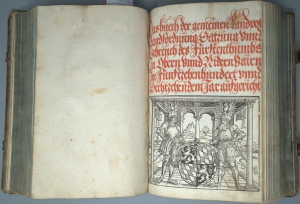 Das buech der gemeinen landpot
Landßordnung Satzung vnnd
Gebreuch des Fürstenthumbs
in Obern vnnd Nidern Bairn
im Funftzehenhundert vnnd
Sechtzehendem Jar aufgericht